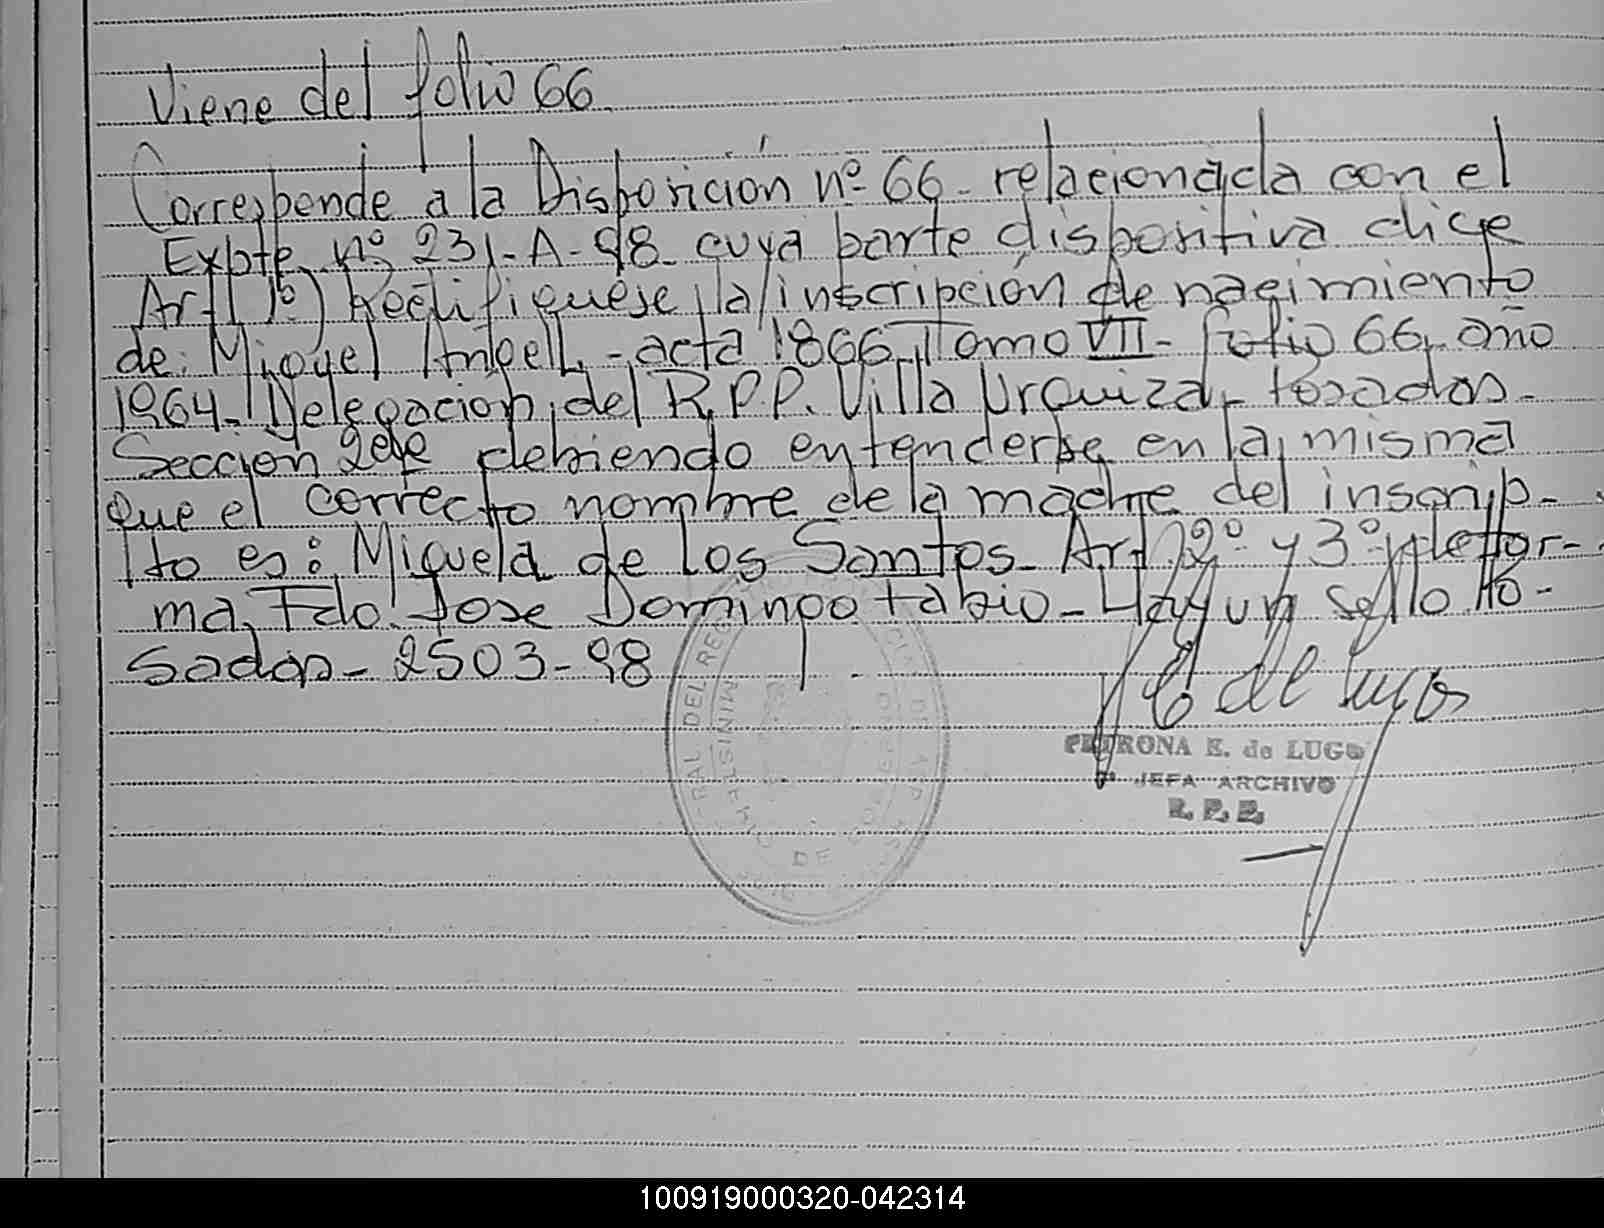 Viene del folio 66.
Corresponde a la Disposición nº 66 - relacionada con el
Expte. nº 231-A-98 cuya parte dispositiva dice
Art 1º) Rectifiquese la inscripción de nacimiento
de: Miguel Angel - acta 1866 - Tomo VII - folio 66, año
1964 - Delegacion del R.P.P. Villa Urquiza, Posadas -
Sección 2da debiendo entenderse en la misma
que el correcto nombre de la madre del inscrip-
to es: Miguela de Los Santos - Art 2º y 3º de for-
ma, Fdo. Jose Domingo Fabio - Hay un sello Po-
sadas - 2503-98
E de Lugo
PETRONA E. de LUGO
JEFA ARCHIVO
R. P. P.
RAL DEL REG
MINISTERIO DE GO
100919000320-042314